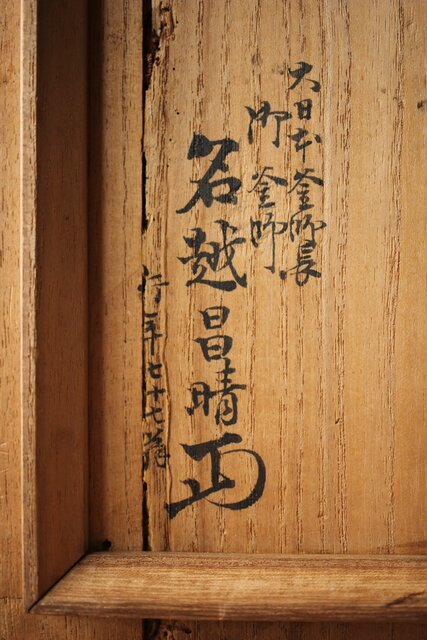 大日本釜師長
御釜師
名越昌晴
行年七十七翁